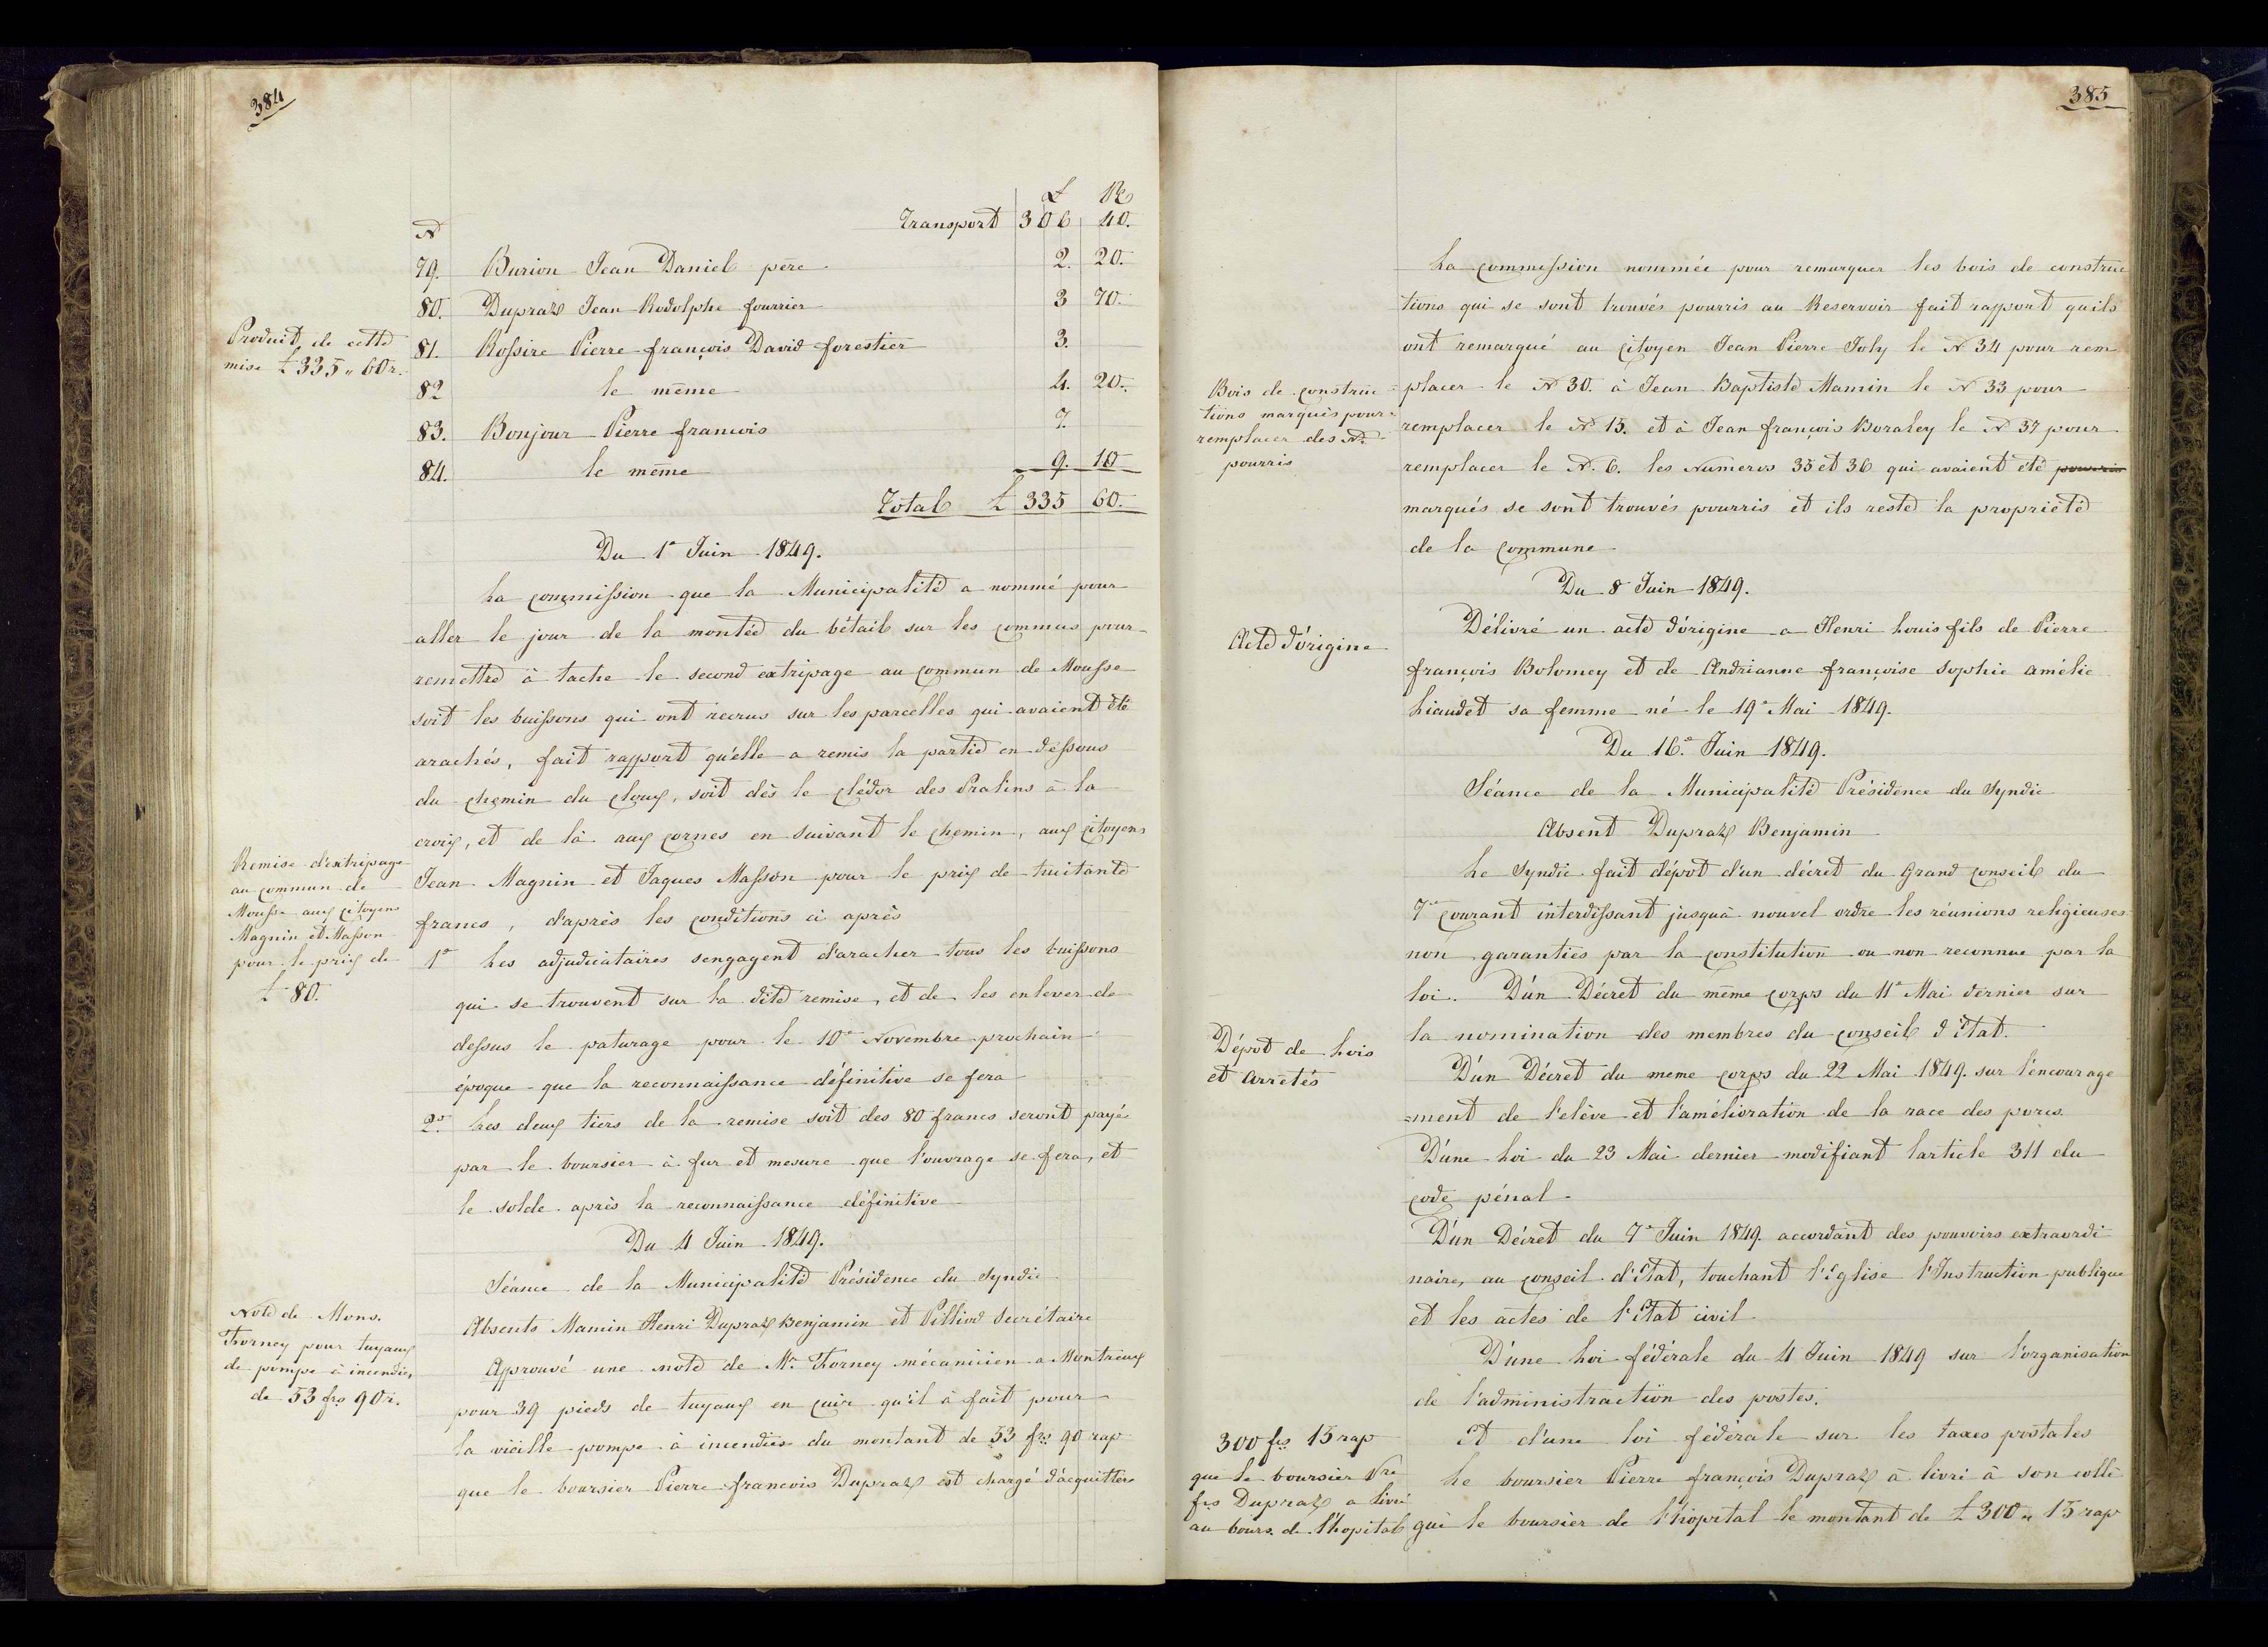 384
£ Rp
N Transport 306 40.
79. Burion Jean Daniel père 2. 20.
80. Dupraz Jean Rodolphe fourrier 3 70.
Produit de cette
mise £ 335 " 60 r.
81. Rossire Pierre françois David forestier 3.
82 le même 4. 20.
83. Bonjour Pierre francois 7.
84. le même 9. 10
Total £ 335 60.
Du 1er Juin 1849.
La commission que la Municipalité a nommé pour
aller le jour de la montée du bétail sur les commus pour
remettre à tache le second extripage au commun de Mousse
soit les buissons qui ont recrus sur les parcelles qui avaient été
arachés, fait rapport qu'elle a remis la partie en dessous
du chemin du cloux, soit dès le clédor des Pralins à la
croix, et de là aux cornes en suivant le chemin, aux citoyens
Remise d'extripage
au commun de
Mousse aux citoyens
Magnin et Masson
pour le prix de
£ 80.
Jean Magnin et Jaques Masson pour le prix de huitante
francs, d'après les conditions ci après
1o Les adjudicataires sengagent d'aracher tous les buissons
qui se trouvent sur la dite remise, et de les enlever de
dessus le paturage pour le 10e Novembre prochain
époque que la reconnaissance définitive se fera
2o. Les deux tiers de la remise soit des 80 francs seront payé
par le boursier à fur et mesure que l'ouvrage se fera, et
le solde après la reconnaissance définitive
Du 4 Juin 1849.
Séance de la Municipalité Présidence du Syndic
Absents Mamin Henri Dupraz Benjamin et Pilliod Secrétaire
Note de Mons.
Forney pour tuyaux
de pompe à incendies
de 53 frs 90 r.
Approuvé une note de Mr Forney mécanicien a Montreux
pour 39 pieds de tuyaux en cuir qu'il à fait pour
la vieille pompe à incendies du montant de 53 frs 90 rap
que le boursier Pierre francois Dupraz est chargé d'acquitter
385
La commission nommée pour remarquer les bois de construc
tions qui se sont trouvés pourris au Reservoir fait rapport quils
ont remarqué au citoyen Jean Pierre Joly le N 34 pour rem
Bois de construc =
tions marqués pour
remplacer des No
pourris
placer le N 30. à Jean Baptiste Mamin le N 33 pour
remplacer le N 15. et à Jean françois Boraley le N 37 pour
remplacer le N. 6. les Numeros 35 et 36 qui avaient été
marqués se sont trouvés pourris et ils reste la propriété
de la commune
Du 8 Juin 1849.
Acte d'origine
Délivré un acte d'origine a Henri Louis fils de Pierre
françois Bolomey et de Andrianne françoise Sophie amélie
Liaudet sa femme né le 19e Mai 1849.
Du 16.e Juin 1849.
Séance de la Municipalité Présidence du Syndic
Absent Dupraz Benjamin
Le Syndic fait dépot d'un décret du Grand conseil du
7e courant interdissant jusquà nouvel ordre les réunions religieuses
non garanties par la constitution ou non reconnue par la
loi. D'un Décret du même corps du 11e Mai dernier sur
Dépot de Lois
et Arrêtés
la nomination des membres du conseil d'état.
D'un Décret du meme corps du 22 Mai 1849. sur l'encourage
=ment de l'elève et l'amélioration de la race des porcs.
D'une Loi du 23 Mai dernier modifiant larticle 311 du
code pénal.
D'un Décret du 7e Juin 1849 accordant des pouvoirs extraordi
naire, au conseil d'état, touchant l'Eglise l'Instruction publique
et les actes de l'état civil
D'une Loi fédérale du 4 Juin 1849 sur l'organisation
de l'administraction des postes.
et d'une loi fédérale sur les taxes postales
300 frs 15 rap
que le boursier Pre
frs Dupraz a livré
au bours. de l'hopital
Le boursier Pierre françois Dupraz à livré à son collè
gue le boursier de l'hôpital le montant de £ 300 " 15 rap